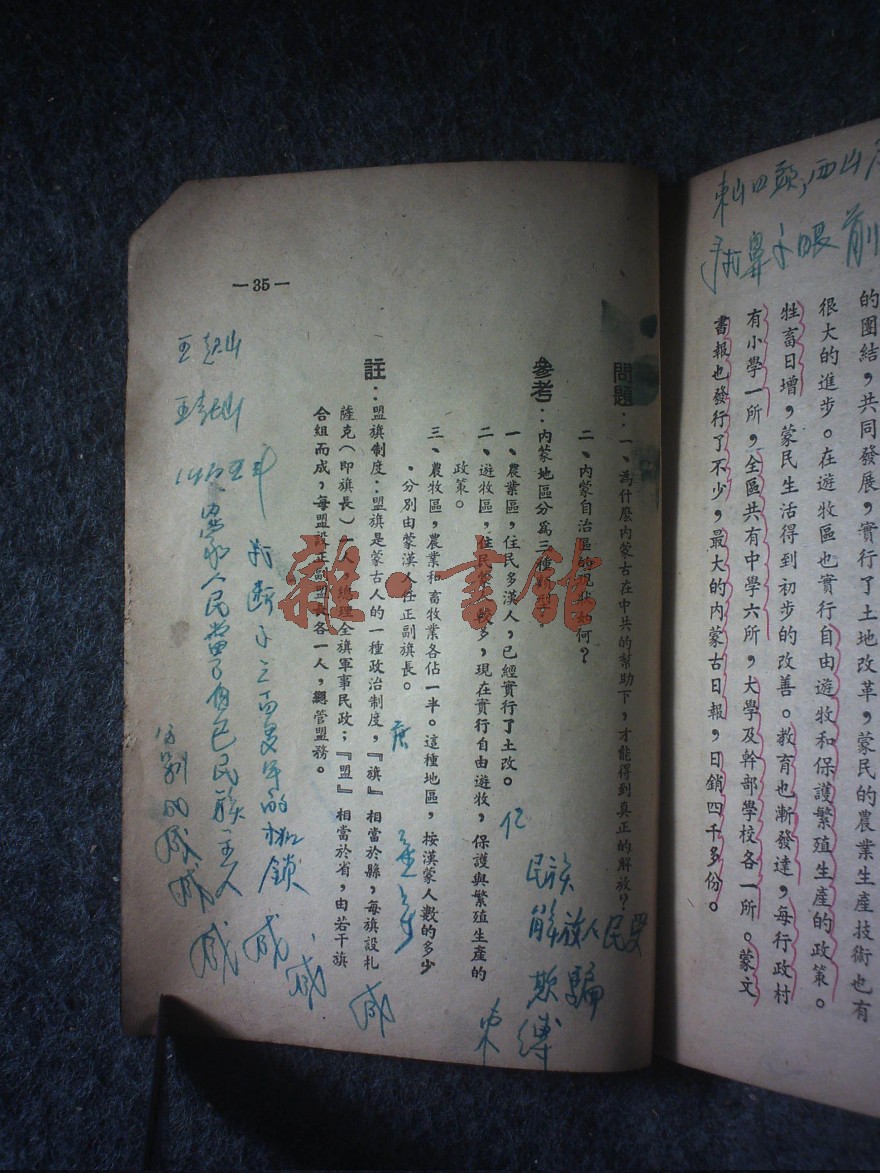 的團結，共同發展，實行了土地改革，蒙民的農業生產技術也有
很大的進步。在遊牧區也實行自由遊牧和保護繁殖生產的政策。
牲畜日增，蒙民生活得到初步的改善。教育也漸發達，每行政村
有小學一所，全區共有中學六所，大學及幹部學校各一所。蒙文
書報也發行了不少，最大的內蒙古日報，日銷四千多份。
問題：一、為什麼內蒙古在中共的幫助下，才能得到真正的解放？
二、內蒙自治區的現狀如何？
參考：內蒙地區分為三種
一、農業區，住民多漢人，已經實行了土改。
二、遊牧區，住民蒙人較多，現在實行自由遊牧，保護與繁殖生產的
政策。
三、農牧區，農業和畜牧業各佔一半。這種地區，按漢蒙人數的多少
，分別由蒙漢人任正副旗長。
註：盟旗制度：盟旗是蒙古人的一種政治制度，『旗』相當於縣，每旗設札
薩克（即旗長）一人，總理全旗軍事民政；『盟』相當於省，由若干旗
合組而成，每盟設正副盟長各一人，總管盟務。
—35—
民族
解放人民受
欺騙
束縛
人民當了自己民族主人
雜·書館